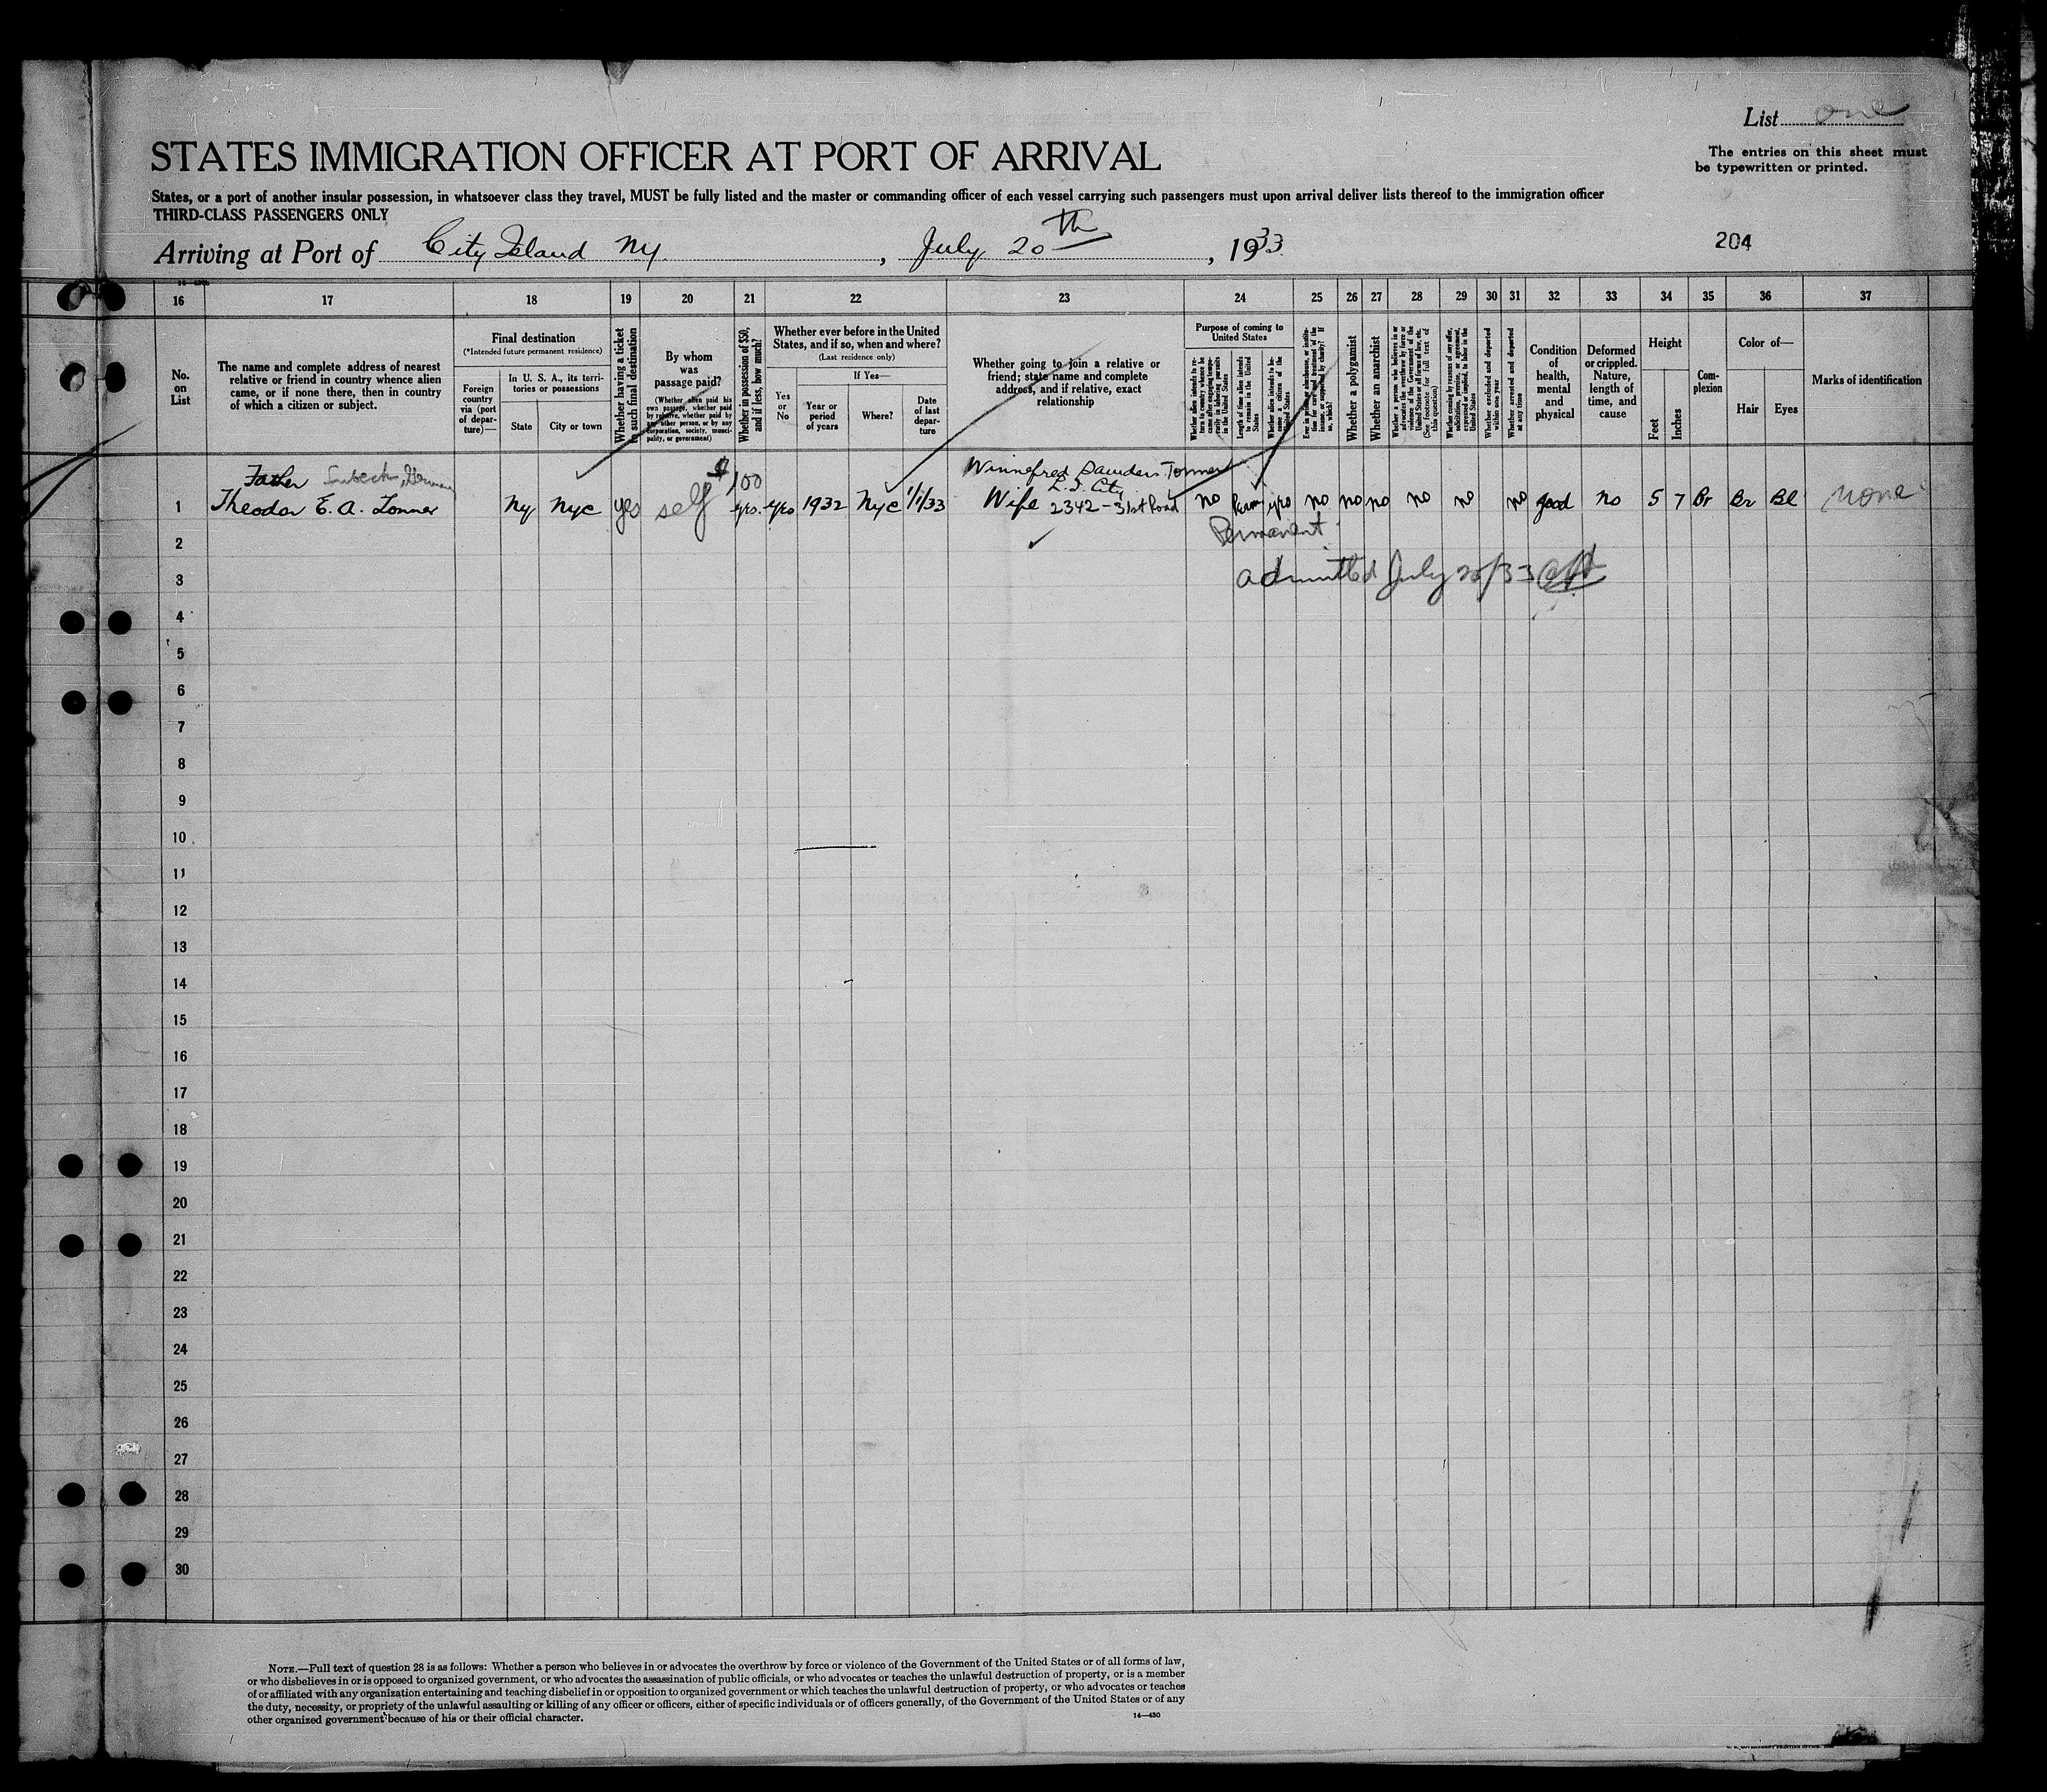 List one
The entries on this sheet must
be typewritten or printed.
STATES IMMIGRATION OFFICER AT PORT OF ARRIVAL
States, or a port of another insular possession, in whatsoever class they travel, MUST be fully listed and the master or commanding officer of each vessel carrying such passengers must upon arrival deliver lists thereof to the immigration officer
THIRD-CLASS PASSENGERS ONLY
Arriving at Port of City Island NY. , July 20th , 1933
204
16 17 18 19 20 21 22 23 24 25 26 27 28 29 30 31 32 33 34 35 36 37
No.
on
List
The name and complete address of nearest
relative or friend in country whence alien
came, or if none there, then in country
of which a citizen or subject.
Final destination
(*Intended future permanent residence)
Foreign
country
via (port
of depar-
ture)—
In U. S. A., its terri-
tories or possessions
State
City or town
Whether having a ticket
to such final destination
By whom
was
passage paid?
(Whether alien paid his
own passage, whether paid
by relative, whether paid by
any other person, or by any
corporation, society, munici-
pality, or government)
Whether in possession of $50,
and if less, how much?
Whether ever before in the United
States, and if so, when and where?
(Last residence only)
If Yes—
Yes
or
No
Year or
period
of years
Where?
Date
of last
depar-
ture
Whether going to join a relative or
friend; state name and complete
address, and if relative, exact
relationship
Purpose of coming to
United States
Whether alien intends to re-
turn to country whence he
came after engaging tempo-
rarily in laboring pursuits
in the United States
Length of time alien intends
to remain in the United
States
Whether alien intends to be-
come a citizen of the
United States
Whether a polygamist
Whether an anarchist
Whether a person who believes in or
advocates the overthrow by force or
violence of the Government of the
United States or all forms of law, etc.
(See footnote for full text of
this question)
Whether coming by reasons of any offer,
solicitation, promise, or agreement,
expressed or implied, to labor in the
United States
Whether excluded and deported
within one year
Whether arrested and deported
at any time
Condition
of
health,
mental
and
physical
Deformed
or crippled.
Nature,
length of
time, and
cause
Height
Feet
Inches
Com-
plexion
Color of—
Hair
Eyes
Marks of identification
Father Lubeck, Germany
Winnefred Saunders Tonner
L. I. City
1 Theodor E. A. Tonner Ny Nyc yes self $100 yes. yes 1932 Nyc 1/1/33 Wife 2342-31st Road no Perm yes no no no no no no good no 5 7 Br Br Bl none
Permanent
2
admitted July 20/33
3
4
5
6
7
8
9
10
11
12
13
14
15
16
17
18
19
20
21
22
23
24
25
26
27
28
29
30
NOTE.—Full text of question 28 is as follows: Whether a person who believes in or advocates the overthrow by force or violence of the Government of the United States or of all forms of law,
or who disbelieves in or is opposed to organized government, or who advocates the assassination of public officials, or who advocates or teaches the unlawful destruction of property, or is a member
of or affiliated with any organization entertaining and teaching disbelief in or opposition to organized government or which teaches the unlawful destruction of property, or who advocates or teaches
the duty, necessity, or propriety of the unlawful assaulting or killing of any officer or officers, either of specific individuals or of officers generally, of the Government of the United States or of any
other organized government because of his or their official character.
14—430